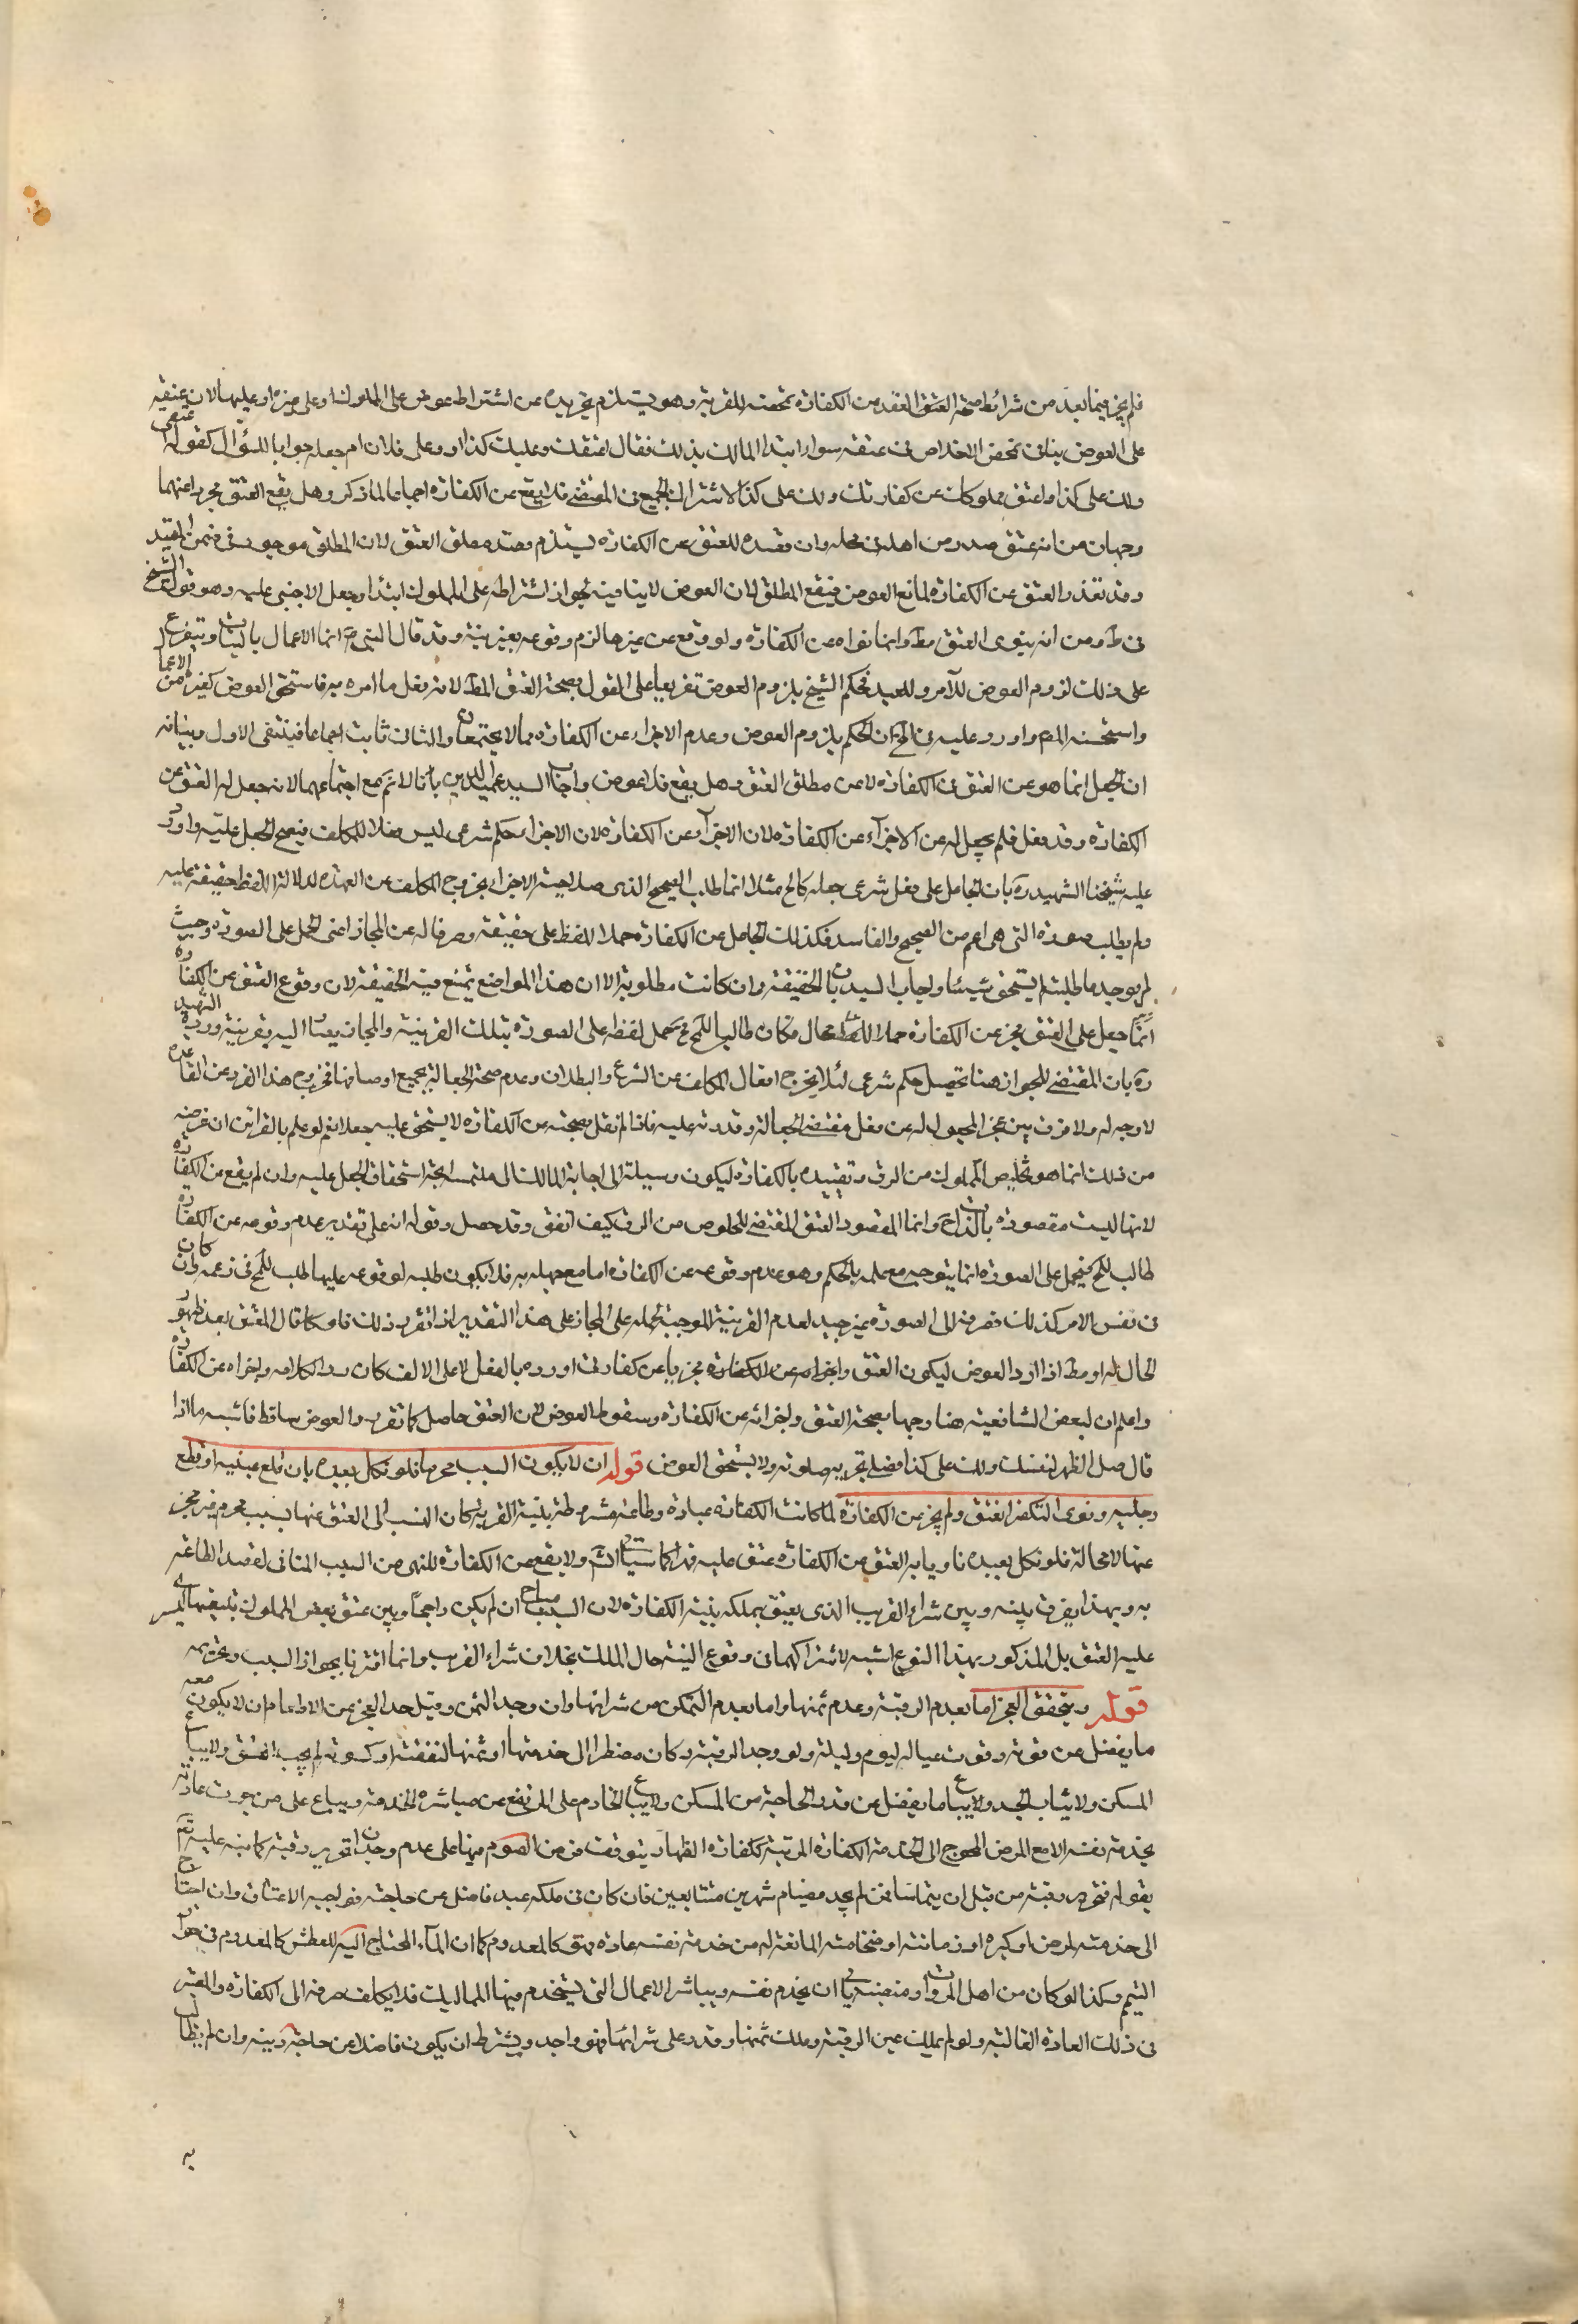 فلم يجز فيما بعد من شرائط صحة العتق العقد من الكفارة تمحضه للقربة وهو يستلزم تجريده عن اشتراط عوض على المملوك او على غيره او عليهما لان عتقه
على العوض ينافى تمحض الاخلاص فى عتقه سواء ابتدا المالك بذلك فقال اعتقتك وعليك كذا او وعلى فلان ام جعله جوابا للسؤال كقوله اعتقنى
ولك على كذا او اعتق مملوكك عن كفارتك ولك على كذا لاشتراك الجميع فى المقتضى فلا يقع عن الكفارة اجماعا لما ذكر وهل يقع العتق مجردا عنهما
وجهان من انه عتق صدر من اهله فى محله وان قصده للعتق عن الكفارة يستلزم قصد مطلق العتق لان المطلق موجود فى ضمن المقيد
وقد تعذر العتق عن الكفارة لمانع العوض فيقع المطلق لان العوض لا ينافيه لجواز اشتراطه على المملوك ابتداء وجعل الاجنبى عليه وهو قول الشيخ
فى ط ومن انه ينوى العتق مط وانما نواه عن الكفارة ولو وقع عن غيرها لزم وقوعه بغير نية وقد قال النبى ص انما الاعمال بالنيات ويتفرع
على ذلك لزوم العوض للآمر وللعبد فحكم الشيخ بلزوم العوض تفريعا على القول بصحة العتق المط لانه بفعل ما امره به فاستحق العوض كغيره من الاعمال
واستحسنه المص واورد عليه فى الحكم بلزوم العوض وعدم الاجزاء عن الكفارة مما لا يجتمعان والثانى ثابت اجماعا فينتفى الاول وبيانه
ان الجعل انما هو عن العتق فى الكفارة لا عن مطلق العتق وهل يقع فلا عوض واجاب السيد عميد الدين بانا لا نم مع اجتماعهما لانه جعل له العتق عن
الكفارة وقد فعل فلم يجعل له عن الاجزاء عن الكفارة لان الاجزاء عن الكفارة لان الاجزاء حكم شرعى ليس فعلا للمكلف فيصح الجعل عليه واورد
عليه شيخنا الشهيد ره بان الجاعل على فعل شرعى جعله كالحج مثلا انما طلب الصحيح الذى صلاحيته الاجزاء بخروج المكلف عن العهدة لدلالة اللفظ حقيقة عليه
ولم يطلب صورة التى هى اعم من الصحيح والفاسد فكذلك الجاعل عن الكفارة حملا للفظ على حقيقته وصرفا له عن المجاز اعنى الحمل على الصورة وحيث
لم يوجد ما طلبه لم يستحق شيئا واجاب السيد بان الحقيقة وان كانت مطلوبة الا ان هذا المواضع تمتنع فيه الحقيقة لان وقوع العتق عن الكفارة
انما جعل على العتق مجز عن الكفارة حملا للفظ محال فكان طالبه يحمل لفظه على الصورة بتلك القرينة والمجاز يصار اليه بقرينة ورده الشهيد
ره بان المقتضى للجواز هنا تحصيل حكم شرعى لئلا يخرج افعال المكلف عن الشرع والبطلان وعدم صحة الجعالة بجميع اوصافها فخروج هذا الفرد عن القاعدة
لا وجه له ولا فرق بين عجز المجعول له عن فعل مقتضى الجعالة وقدرته عليه فاذا لم نقل بصحته عن الكفارة لا يستحق عليه جعلا نعم لو علم بالقرائن ان غرضه
من ذلك انما هو تخليص المملوك من الرق وتقييده بالكفارة ليكون وسيلة الى اجابة المالك الى ملتمسه اتجه استحقاق الجعل عليه وان لم يقع عن الكفارة
لانها ليست مقصودة بالذات ح وانما المقصود العتق المقتضى للخلوص من الرق كيف اتفق وقد حصل وقوله انه على تقدير عدم وقوعه عن الكفارة
طالب للمح فيحمل على الصورة انما يتوجه مع علمه بالحكم وهو عدم وقوعه عن الكفارة اما مع جهله به فلا يكون طلبه لوقوعه عليها طلب للمح فى زعمه وان كان
فى نفس الامر كذلك فصرفه الى الصورة غير جيد لعدم القرينة الموجبة لحمله على المجاز على هذا التقدير اذا تقرر ذلك فلو كان قال المعتق بعد ظهور
الحال له او مط اذا ارد العوض ليكون العتق واجزاءه عن الكفارة مجزيا عن كفارتى او رده بالفعل لا على الالف كان رد الكلامه واجزاه عن الكفارة
واعلم ان لبعض الشافعية هنا وجها بصحة العتق واجزائه عن الكفارة وسقوط العوض لان العتق حاصل كما تقرر والعوض ساقط فاشبه ما اذا
قال صل الظهر لنفسك ولك على كذا فصلى تجزيه صلوته ولا يستحق العوض قوله ان لا يكون السبب محرما فلو نكل بعبده بان قلع عينيه او قطع
رجليه ونوى التكفير انعتق ولم يجز عن الكفارة لما كانت الكفارة عبادة وطاعة مشروطة بنية القربة كان السبب الى العتق عنها بسبب محرم غير مجز
عنها لا محالة فلو نكل بعبده ناويا به العتق عن الكفارة عتق عليه فلا كما سيأتى انش ولا يقع عن الكفارة للنهى عن السبب المنافى لقصد الطاعة
به وبهذا يفرق بينه وبين شراء القريب الذى يعتق بملكه بنية الكفارة لان السبب مباح ان لم يكن راجحا وبين عتق بعض المملوك بنية يسرى
عليه العتق بل المذكور بهذا النوع اشبه لاشتراكهما فى وقوع النية حال الملك بخلاف شراء القريب وانما افترقا بجواز السبب وتحريمه
قوله ويتحقق العجز اما بعدم الرقبة وعدم ثمنها واما بعدم التمكن من شرائها وان وجد الثمن وقيل حد العجز عن الاطعام ان لا يكون معه
ما يفضل عن قوته وقوت عياله ليوم وليلة ولو وجد الرقبة وكان مضطرا الى خدمتها او ثمنها لنفقته او كسوته لم يجب العتق ولا يباع
المسكن ولا ثياب الجسد ولا يباع ما يفضل عن قدر الحاجة من المسكن ولا يباع الخادم على المرتفع عن مباشرة الخدمة ويباع على من جرت عادته
بخدمة نفسه الا مع المرض المحوج الى الخدمة الكفارة المرتبة ككفارة الظهار يتوقف فرض الصوم فيها على عدم وجدان تحرير رقبة كما نبه عليه تع
بقوله فتحرير رقبة من قبل ان يتماسا فمن لم يجد فصيام شهرين متتابعين فان كان فى ملكه عبد فاضل عن حاجته فواجبه الاعتاق وان احتاج
الى خدمته لمرض او كبره او زمانته او ضخامته المانعة له من خدمة نفسه عادة فهو كالمعدوم كما ان الماء المحتاج اليه للعطش كالمعدوم فى جواز
التيمم وكذا لو كان من اهل المروات ومنصبه يأبى ان يخدم نفسه ويباشر الاعمال التى يستخدم فيها المماليك فلا يكلف صرفه الى الكفارة والمعتبر
فى ذلك العادة الغالبة ولو لم يملك عين الرقبة وملك ثمنها وقدر على شرائها فهو واجد ويشترط ان يكون فاضلا عن حاجته ودينه وان لم يطالب
به